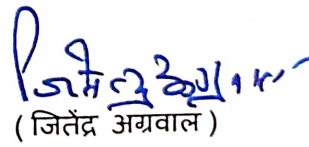 जितेन्द्र अग्रवाल
( जितेंद्र अग्रवाल )